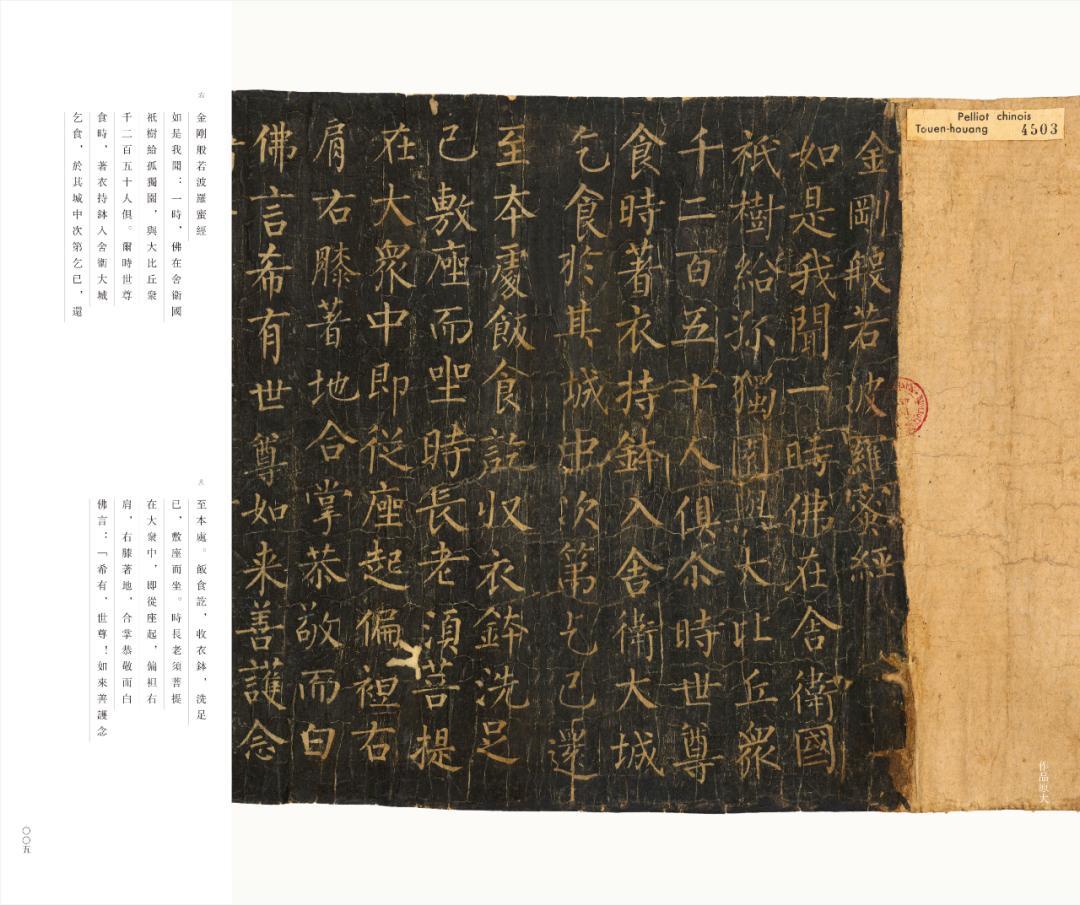 Pelliot chinois
Touen-houang 4503
作品原大
金剛般若波羅蜜經
如是我聞一時佛在舍衛國
祇樹給孤獨園與大比丘眾
千二百五十人俱尒時世尊
食時著衣持鉢入舍衛大城
乞食於其城中次第乞已還
至本處飯食訖収衣鉢洗足
已敷座而坐時長老須菩提
在大眾中即從座起偏袒右
肩右膝著地合掌恭敬而白
佛言希有世尊如来善護念
右
金剛般若波羅蜜經
如是我聞：一時，佛在舍衛國
祇樹給孤獨園，與大比丘衆
千二百五十人俱。爾時世尊
食時，著衣持鉢入舍衛大城
乞食，於其城中次第乞已，還
至本處。飯食訖，收衣鉢，洗足
已，敷座而坐。時長老須菩提
在大衆中，即從座起，偏袒右
肩，右膝著地，合掌恭敬而白
佛言：「希有，世尊！如來善護念
〇〇五